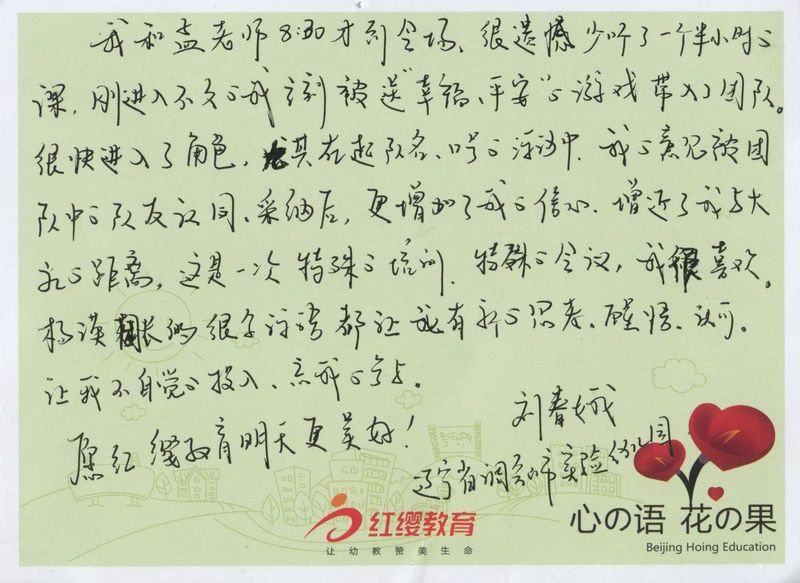 我和孟老师8:30才到会场、很遗憾少听了一个半小时的
课,刚进入不久的我立刻被送"幸福、平安"的游戏带入了团队。
很快进入了角色,尤其在起队名、口号的活动中.我的意见被团
队中的队友认同、采纳后,更增加了我的信心、增近了我与大
家的距离,这是一次特殊的培训.特殊的会议,我很喜欢。
杨 很多话语都让我有新的思考、醒悟、认可。
让我不自觉的投入、
愿红缨教育明天更美好!
刘春娥
辽宁省调兵山市实验幼儿园
红缨教育
让幼教赞美生命
心の语 花の果
Beijing Hoing Education